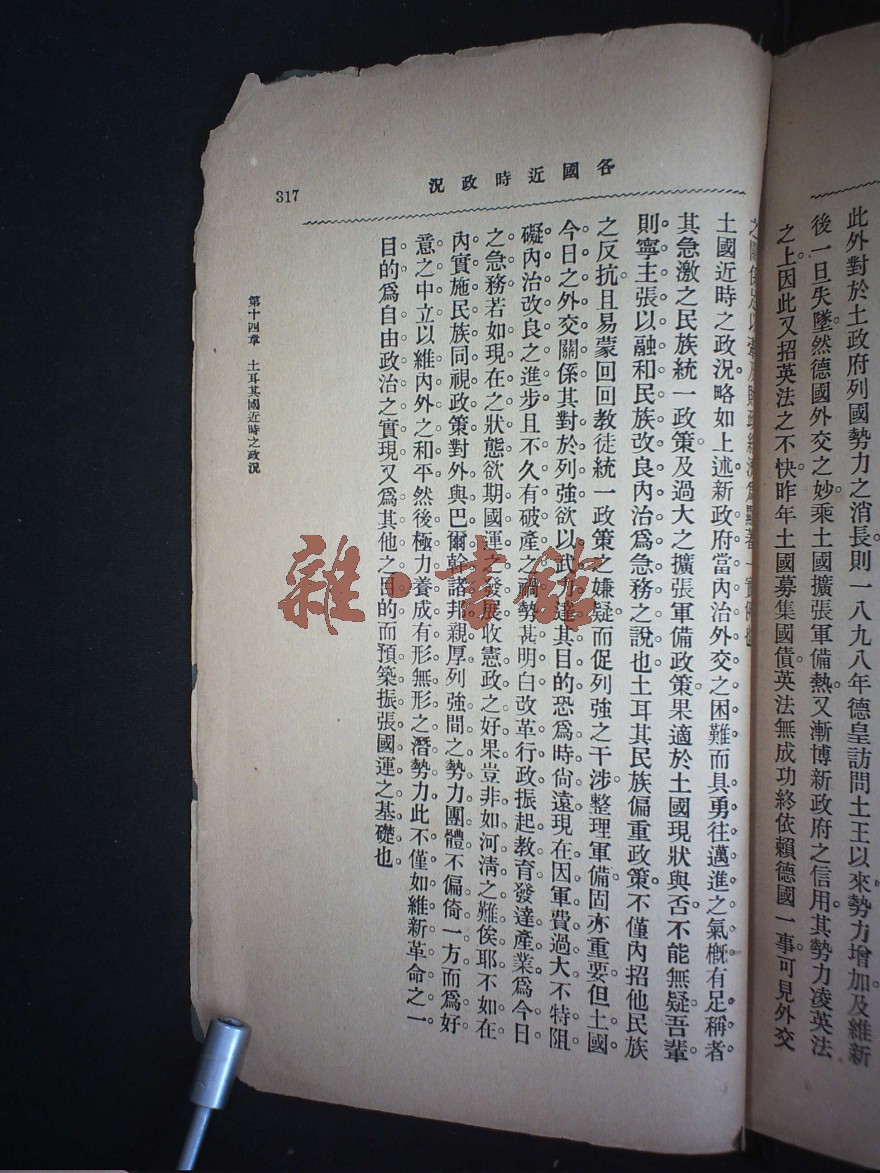 各國近時政況
317
此外對於土政府列國勢力之消長則一八九八年德皇訪問土王以來勢力增加及維新
後一旦失墜然德國外交之妙乘土國擴張軍備熱又漸博新政府之信用其勢力凌英法
之上因此又招英法之不快昨年土國募集國債英法無成功終依賴德國一事可見外交
之關係足以
土國近時之政況略如上述新政府當內治外交之困難而具勇往邁進之氣概有足稱者
其急激之民族統一政策及過大之擴張軍備政策果適於土國現狀與否不能無疑吾輩
則寧主張以融和民族改良內治爲急務之說也土耳其民族偏重政策不僅內招他民族
之反抗且易蒙回回教徒統一政策之嫌疑而促列強之干涉整理軍備固亦重要但土國
今日之外交關係其對於列強欲以武力達其目的恐爲時尙遠現在因軍費過大不特阻
礙內治改良之進步且不久有破產之禍勢甚明白改革行政振起教育發達產業爲今日
之急務若如現在之狀態欲期國運之發展收憲政之好果豈非如河清之難俟耶不如在
內實施民族同視政策對外與巴爾幹諸邦親厚列強間之勢力團體不偏倚一方而爲好
意之中立以維內外之和平然後極力養成有形無形之潛勢力此不僅如維新革命之一
目的爲自由政治之實現又爲其他之目的而預築振張國運之基礎也
第十四章 土耳其國近時之政況
雜·書館